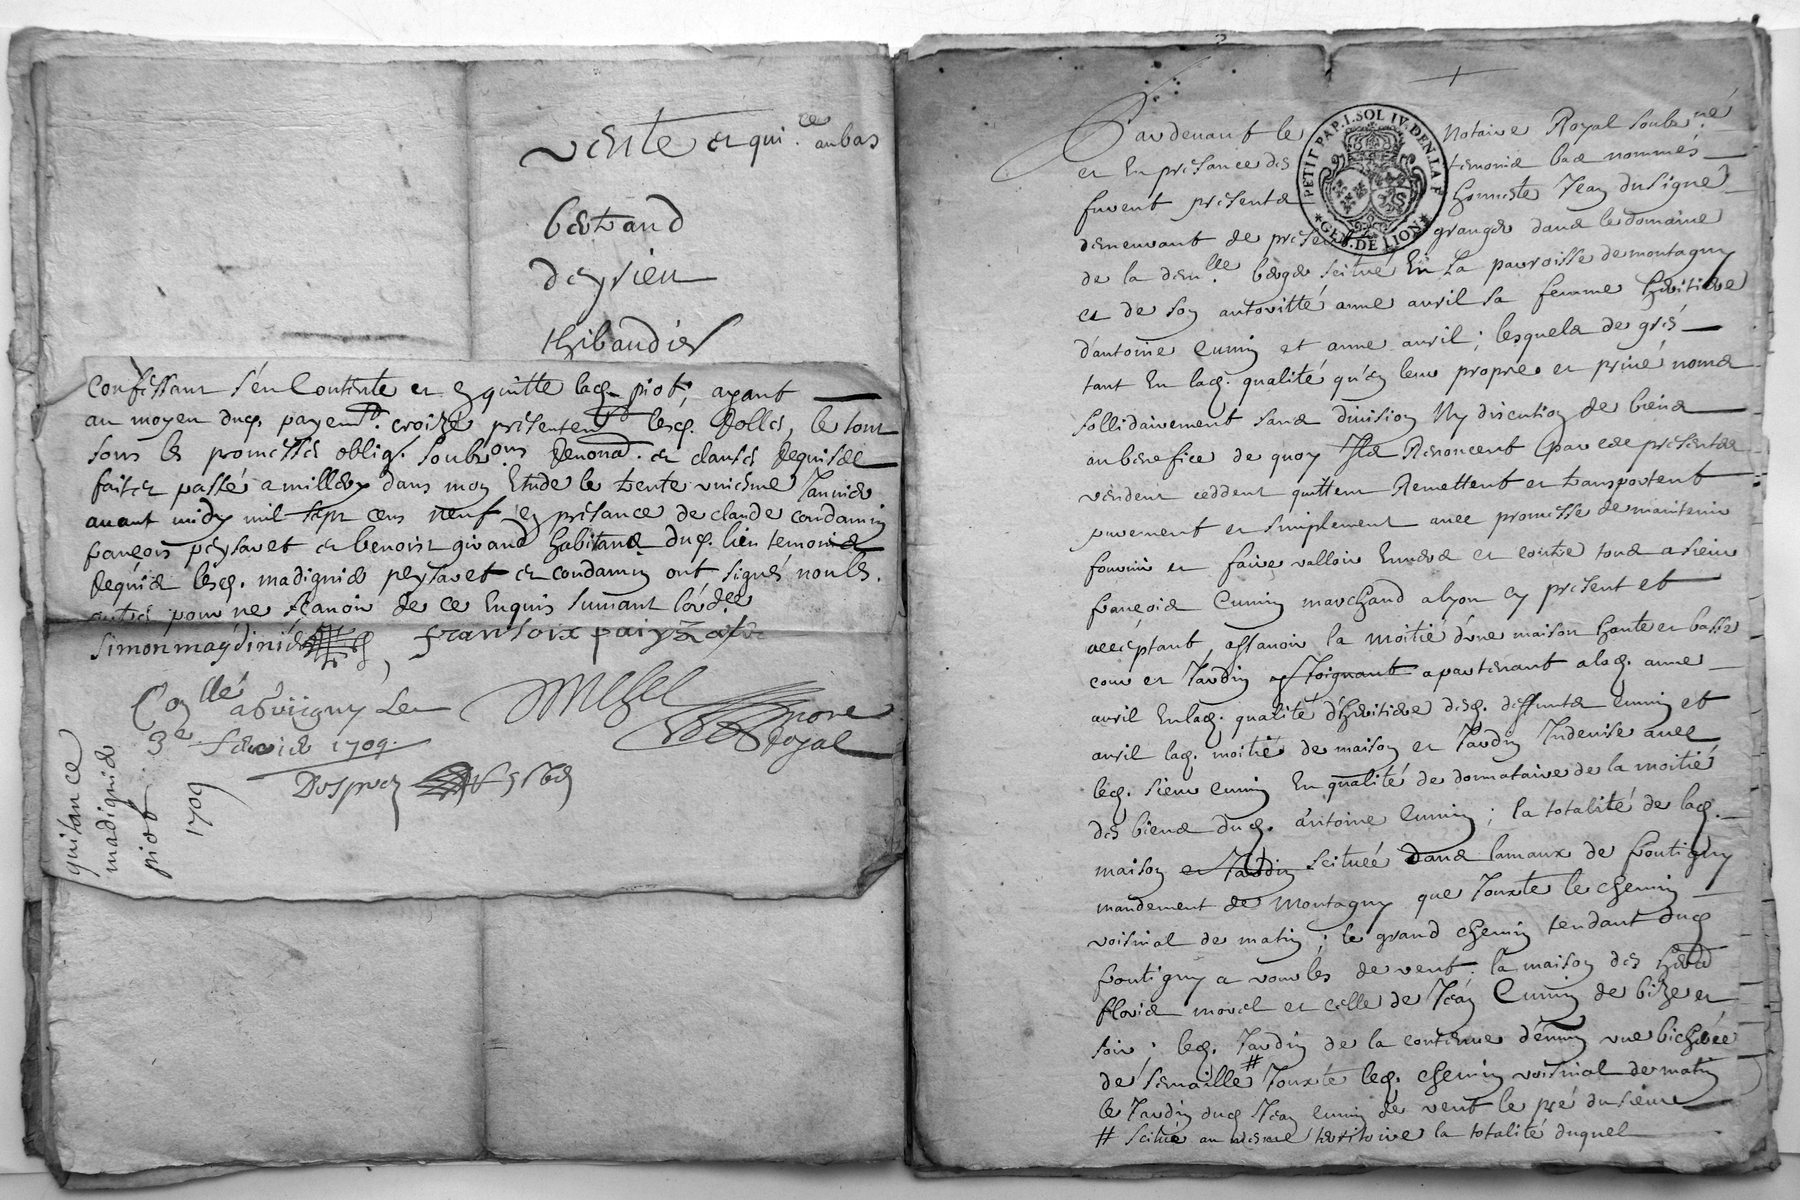 vente et qui.ce au bas
bertrand
deysieu
thibaudier
Confessant s'en Contente et en quitte lad. piot, ayant
au moyen dud. payemt. croizé presentemt lesd. Rolles, le tout
sous les promesses oblig. soubmons Renond. et clauses Requises
fait et passé a millery dans mon Etude le trente uniesme Janvier
avant midy mil sept cens neuf en presance de claude condamin
françois peysaret et benoist girand habitans dud. lieu temoins
Requis lesd. madignier peysaret et condamin ont signés non les
autres pour ne sçavoir de ce Enquis suivant l'ord.ce
simon magdinier fransois paiyzaret
Con.llé a Grigny Le
3e fevrier 1709.
nore
Royal
quitance
madignier
piot
1709
PETIT PAP. I. SOL IV. DEN. LA F
GEN. DE LION
Pardevant le Notaire Royal soubsné
et En presance des temoins bas nommés
furent presents honneste Jean du signé
demeurant de present granger dans le domaine
de la demlle berger scitué En La parroisse de montagny
et de son autoritté anne avril sa femme heritiere
d'antoine Cumin et anne avril; lesquels de gres
tant En lad. qualité qu'en leur propre et privé noms
sollidairement sans division Ny discution de biens
au benefice de quoy Ils Renoncent par ces presentes
vendent ceddent quittent Remettent et transportent
purement et simplement avec promesse de maintenir
fournir et faire valloir Envers et contre tous a sieur
françois Cumin marchand a lyon cy present et
acceptant, assavoir la moitié d'une maison haute et basse
cour et Jardin y Joignant apartenant a lad. anne
avril En lad. qualité d'heritiere desd. deffunts cumin et
avril lad. moitié de maison et Jardin Indivise avec
led. sieur cumin En qualité de donnataire de la moitié
des biens dud. antoine Cumin; la totalité de lad.
maison et Jardin scituée dans lamaux de fontigny
mandement de Montagny que Jouxte le chemin
voisinal de matin; le grand chemin tendant dud
fontigny a vourles de vent; la maison des herd
floris morel et celle de Jean Cumin de bize et
soir; led. Jardin de la contenue d'environ une bicherée
de semaille # Jouxte led. chemin voisinal de matin
le Jardin dud Jean cumin de vent le pré du sieur
# scitué au mesme territoire la totalité duquel